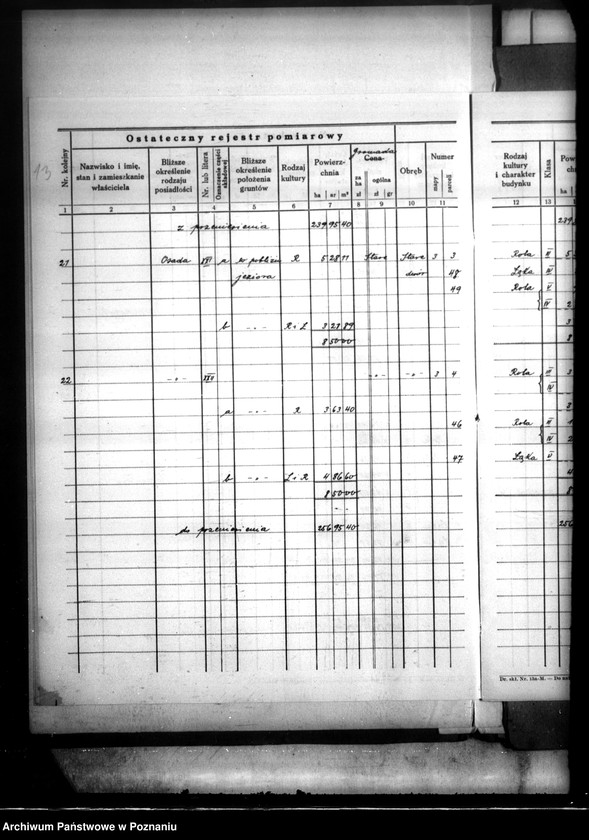 13
Ostateczny rejestr pomiarowy
Nr. kolejny
Nazwisko i imię, stan i zamieszkanie właściciela
Bliższe określenie rodzaju posiadłości
Nr. lub litera
Oznaczenie części składowej
Bliższe określenie położenia gruntów
Rodzaj kultury
Powierzchnia
ha ar m²
Gromada
Cena
za ha
zł
ogólna
zł gr
Obręb
Numer
mapy
parceli
Rodzaj kultury i charakter budynku
Klasa
Pow
ha
1 2 3 4 5 6 7 8 9 10 11 12 13
z przeniesienia 239 95 40 239
21 Osada XVI a w pobliżu R 5 28 11 Stara Stara 3 3 Rola III 5
jeziora dwór 48 Łąka IV
49 Rola V
IV 2
b -„- R i Ł 3 21 89 3
8 50 00 8
22 -„- XVII -„- -„- 3 4 Rola III 3
IV
a -„- R 3 63 40
46 Rola III 1
IV 2
47 Łąka V
b -„- Ł i R 4 86 60 4
8 50 00 8
do przeniesienia 256 95 40 256
Dr. skł. Nr. 18a-M. — Do nab
Archiwum Państwowe w Poznaniu